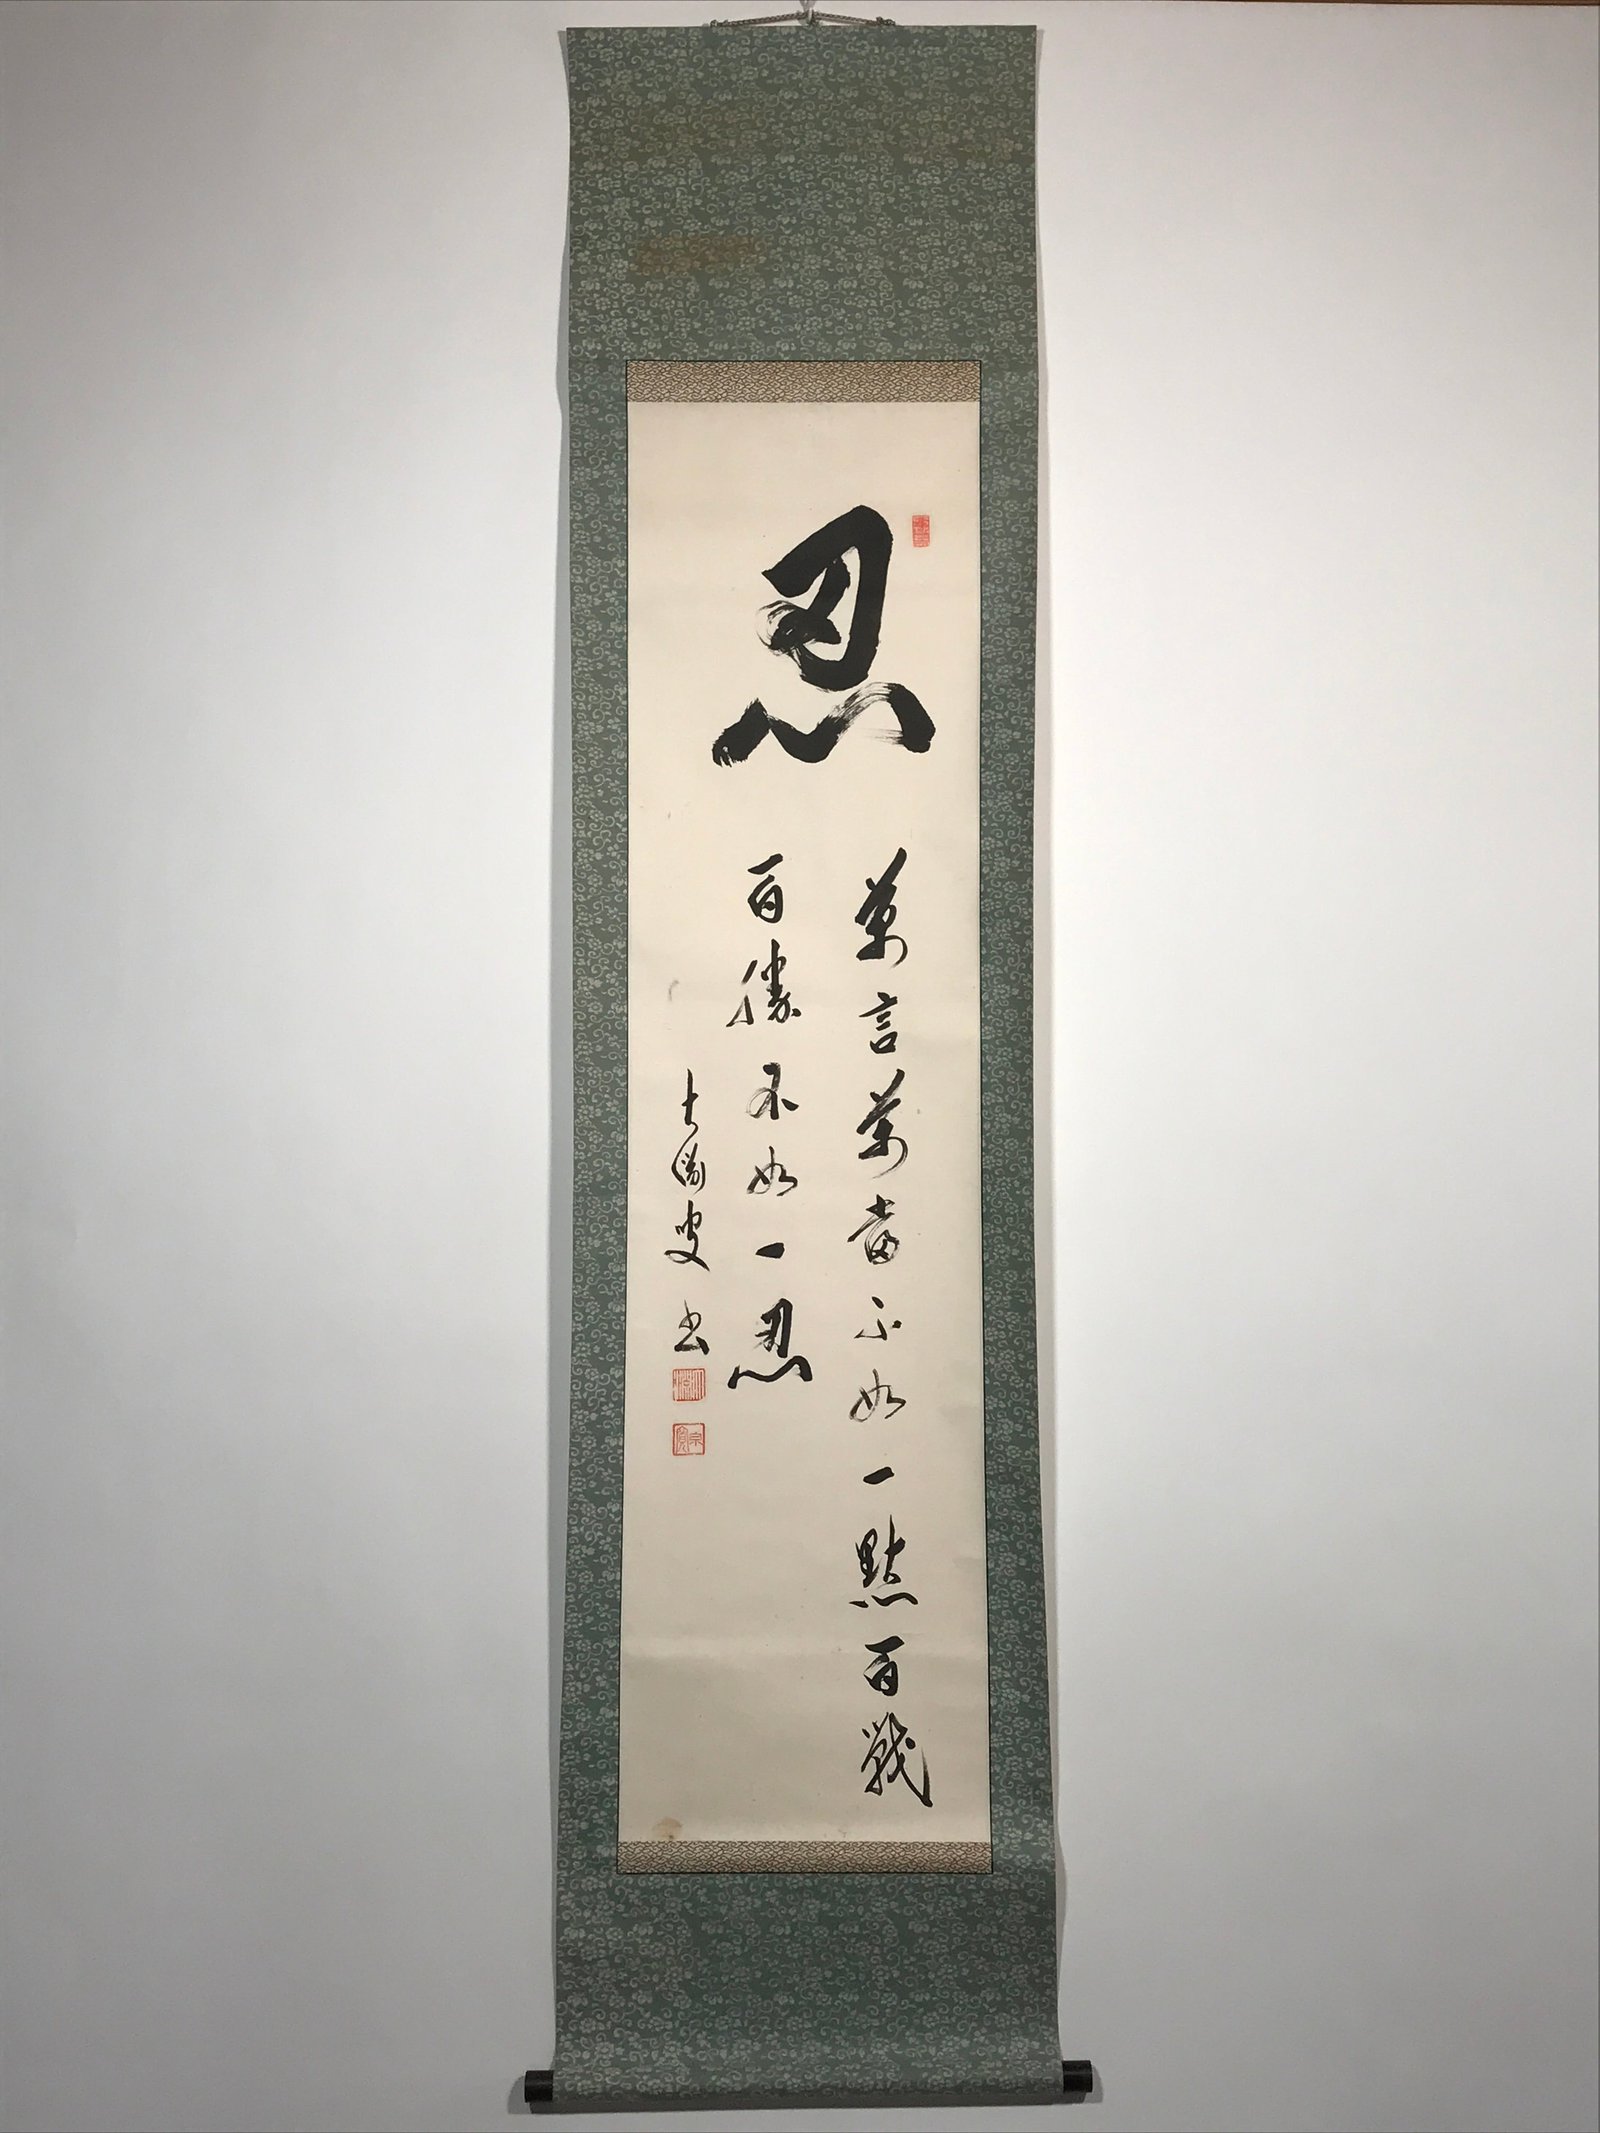 忍
萬言萬當不如一黙百戦
百勝不如一忍
書